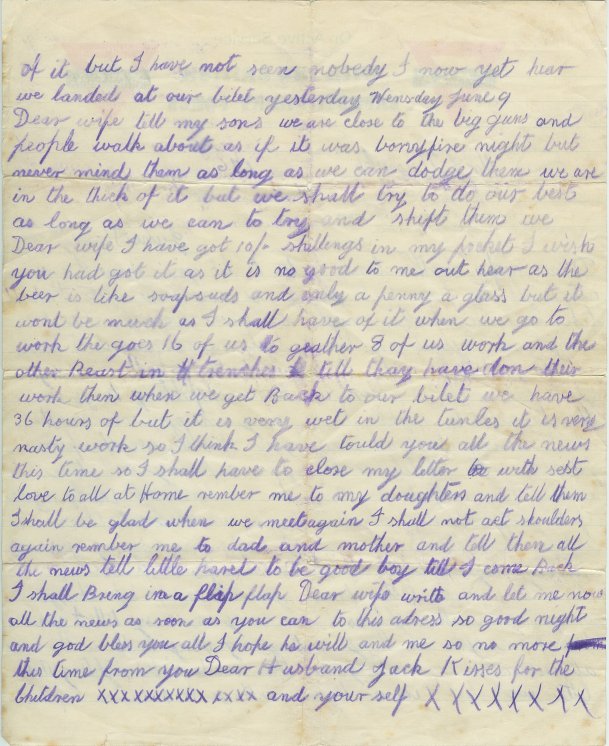 of it but I have not seen nobody I now yet hear
we landed at our bilet yesterday Wensday June 9
Dear wife tell my sons we are close to the big guns and
people walk about as if it was bonyfire night but
never mind them as long as we can dodge them we are
in the thick of it but we shall try to do our best
as long as we can to try and shift them we
Dear wife I have got 10/- shillings in my pocket I wish
you had got it as it is no good to me out hear as the
beer is like soapsuds and only a penny a glass but it
wont be much as I shall have of it when we go to
work the goes 16 of us to geather 8 of us work and the
other Reast in trenches till thay have don their
work then when we get Back to our bilet we have
36 hours of but it is very wet in the tunles it is very
nasty work so I think I have tould you all the news
this time so I shall have to close my letter with
love to all at Home rember me to my daughters and tell them
I shall be glad when we meet again I shall not shoulders
again rember me to dad and mother and tell then all
the news tell little to be good boy till I come Back
I shall Bring im a flip flap Dear wife write and let me now
all the news as soon as you can to this adress so good night
and god bless you all I hope he will and me so no more
this time from you Dear Husband Jack Kisses for the
Children xxxxxxxxxx xxxx and your self X X X X X X X X